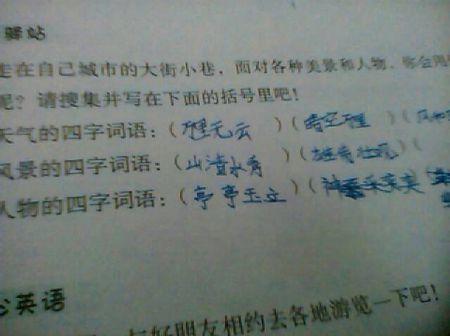 驿站
走在自己城市的大街小巷，面对各种美景和人物，你会用
呢？请搜集并写在下面的括号里吧！
天气的四字词语：（ ）（ ）（
风景的四字词语：（山清水秀）（ ）（
人物的四字词语：（亭亭玉立）（神采奕奕
英语
与好朋友相约去各地游览一下吧！